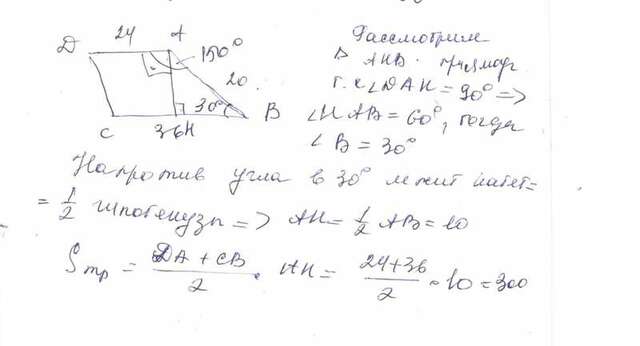 D 24 A
150°
20
30° B
C 36 H
Рассмотрим
Δ AHB - прямоуг
т.к ∠DAH = 90° =>
∠HAB = 60°, тогда
∠B = 30°
Напротив угла в 30° лежит катет=
= 1/2 гипотенузы => AH = 1/2 AB = 10
Sтр = (DA + CB)/2 · AH = (24+36)/2 · 10 = 300